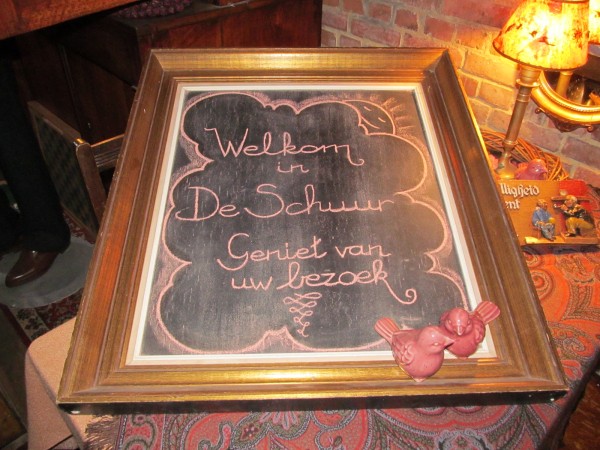 Welkom
in
De Schuur
Geniet van
uw bezoek
lligheid